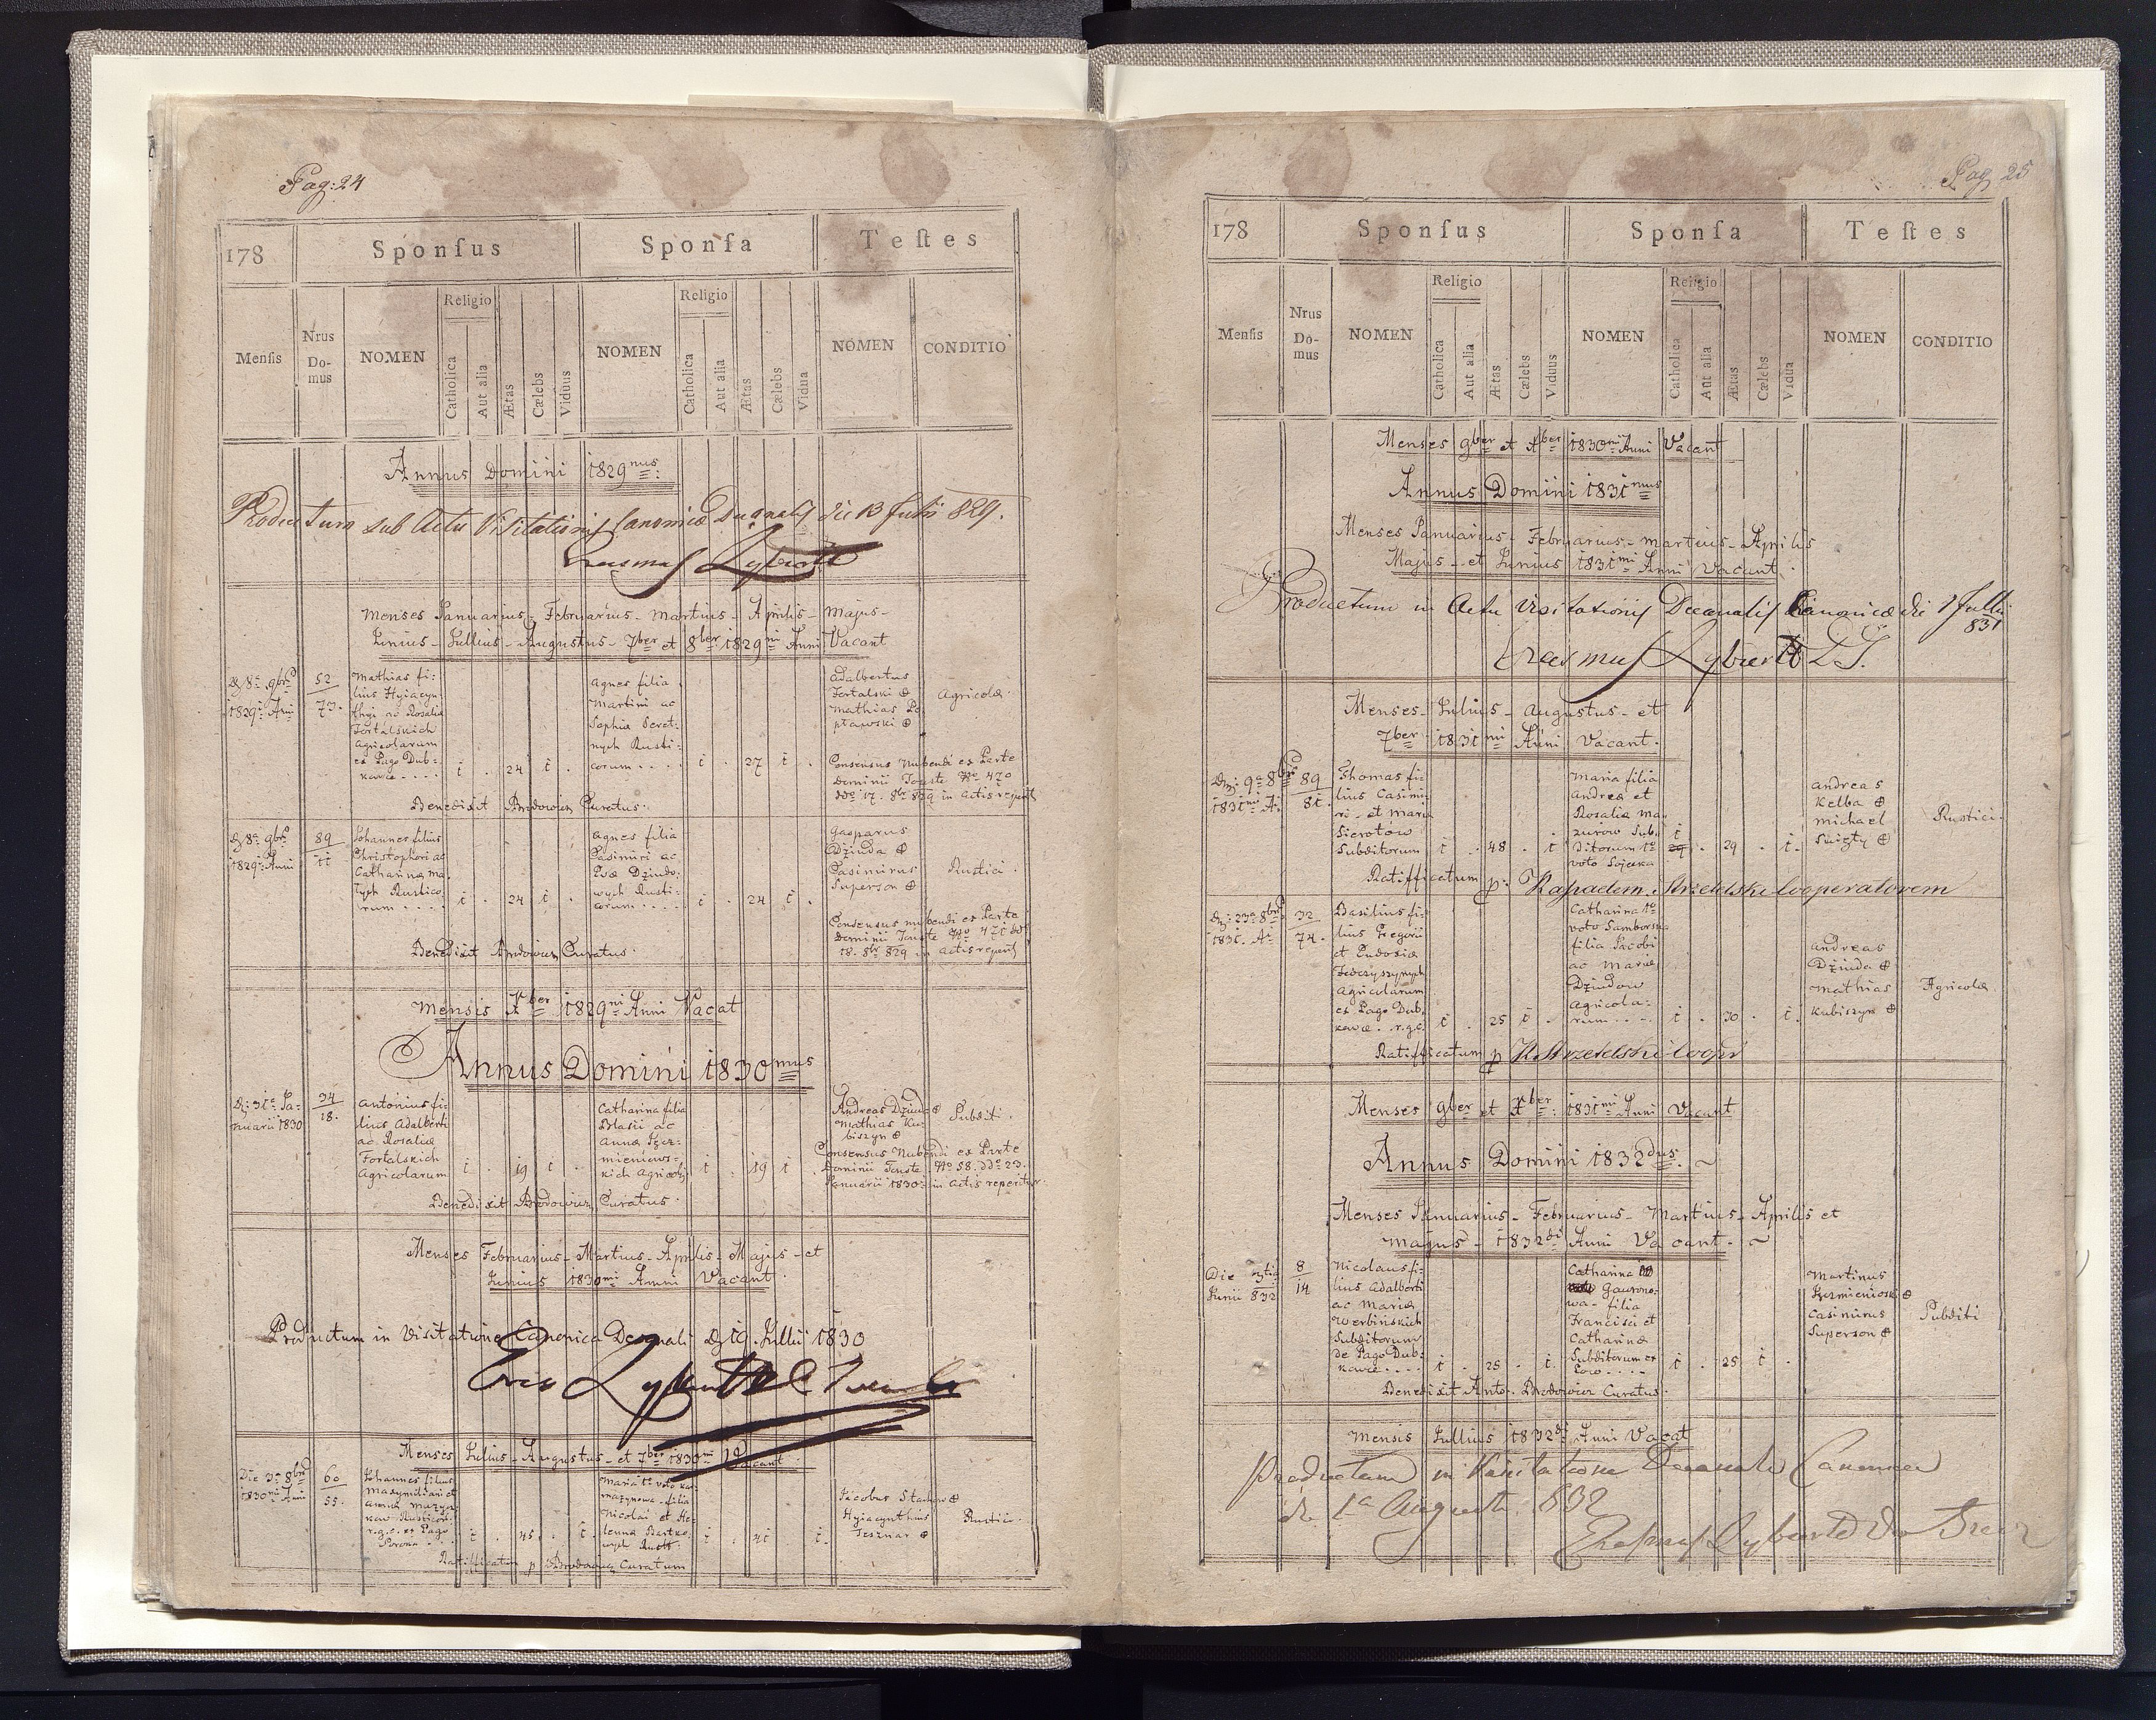 Pag: 24
178
Sponſus
Sponſa
Teſtes
Menſis
Nrus Domus
NOMEN
Religio
Catholica
Aut alia
Ætas
Cælebs
Viduus
NOMEN
Religio
Catholica
Aut alia
Ætas
Cælebs
Vidua
NOMEN
CONDITIO
Annus Domini 1829nus:
Productum sub Actu Visitationis Canonicæ die 13 829.
Erasmus
Menses Januarius - Februarius - Martius - Aprilis - Majus -
Junius - Jullius - Augustus - 7ber et 8ber 1829ni Anni Vacant
8a 9bris
1829i Anni
52
73.
Mathias fi-
lius Hyiacyn-
thyi ac Rosaliæ
Fortalskich
Agricolarum
ex Pago Dub-
kowce - - - -
1 . 24 1 .
Agnes filia
Martini ac
Sophiæ
nych Rusti-
corum - - - -
1 . 27 1 .
Adalbertus
Fortalski
Mathias
Agricolæ.
Consensus Nubendi ex Parte
Dominii Touste No 470
ddo 17. 8br 829 in Actis
Benedixit Brodowicz Curatus.
8a 9bris
1829i Anni
89
11
Johannes filius
Christophori ac
Catharinæ
Rustico-
rum - - - -
1 . 24 1 .
Agnes filia
Casimiri ac
Evæ Dziudo-
wych Rusti-
corum - - - -
1 . 24 1 .
Gasparus
Dziuda
Casimirus
Superson
Rustici.
Consensus nubendi ex Parte
Dominii Touste No 471
18. 8br 829 in actis
Benedixit Brodowicz Curatus.
Mensis Xber 1829ni Anni Vacat
Annus Domini 1830mus
31a Ja-
nuarii 1830
34
18.
Antonius fi-
lius Adalberti
ac Rosaliæ
Fortalskich
Agricolarum
1 . 19 1 .
Catharina filia
Blasii ac
Annæ Szcz-
mieniows-
kich
1 . 19 1 .
Andreas Dziuda
Mathias Ku-
biszyn
Subditi.
Consensus Nubendi ex Parte
Dominii Touste No 58. ddo 23.
Januarii 1830 in actis reperitur.
Benedixit Brodowicz Curatus.
Menses Februarius - Martius - Aprilis - Majus - et
Junius 1830mi Anni Vacant.
Productum in Visitatione Canonica Decanali 19 Jullii 1830
Menses Julius - Augustus - et 7ber 1830mi Vacant
Die 3a 8bris
1830mi Anni
60
55.
Johannes filius
Maxymiliani et
Annæ
Rusticor.
r. g. c. ex Pago
1 . 45 . 1 .
Maria 1o voto
filia
Nicolai et He-
lenna Bartko-
wych
1 . 41 1 .
Jacobus
Hyiacynthus
Rustici.
Ratifficatum p Brodowicz Curatum
Pag 25
178
Sponſus
Sponſa
Teſtes
Menſis
Nrus Domus
NOMEN
Religio
Catholica
Aut alia
Ætas
Cælebs
Viduus
NOMEN
Religio
Catholica
Aut alia
Ætas
Cælebs
Vidua
NOMEN
CONDITIO
Menses 9ber et Xber 1830mi Anni Vacant
Annus Domini 1831mus
Menses Januarius - Februarius - Martius - Aprilis
Majus - et Junius 1831mi Anni Vacant.
Productum in Actu Visitationis Decanalis Canonicæ die 1 Jullii
831
Erasmus
Menses - Julius - Augustus - et
7ber 1831mi Anni Vacant.
9a 8bris
1831mi A.
89
81.
Thomas fi-
lius Casimi-
ri - et Mariæ
Sierotów
Subditorum
1 . 48 . 1
Maria filia
Andreæ et
Rosaliæ Ma-
zurów Sub-
ditorum 1o
voto
1 . 29 . 1.
Andreas
Kelba
Michael
Swięty
Rustici.
Ratifficatum p: Strzetelski Cooperatorem
23a 8bris
1831. A.
32
74.
Basilius fi-
lius Gregorii
et Eudosiæ
Agricolarum
ex Pago Dub-
kowce. r.g.c.
1 . 25 1 .
Catharina 1o
voto Samborska
filia Jacobi
ac Mariæ
Dziudow
Agricola-
rum - - -
1 . 30 . 1.
Andreas
Dziuda
Mathias
Kubiszyn
Agricolæ.
Ratifficatum p Strzetelski Coopr
Menses 9ber et Xber: 1831mi Anni Vacant
Annus Domini 1832dus. ~
Menses Januarius - Februarius - Martius - Aprilis et
Majus - 1832di Anni Vacant. - ~
Die
Junii 832
8
14
Nicolaus fi-
lius Adalberti
ac Mariæ
Werbińskich
Subditorum
de Pago Dub-
kowce - - - -
1 . 25 . 1.
Catharina
Gawrono-
wa - filia
Francisci et
Catharinæ
Subditorum ex
1 . 25 1 .
Martinus
Casimirus
Superson
Subditi
Benedixit Anto. Brodowicz Curatus.
Mensis Jullius 1832di Anni Vacat
Productum in Visitatione Decanali Canonica
die 1a Augusti 832
Erasmus